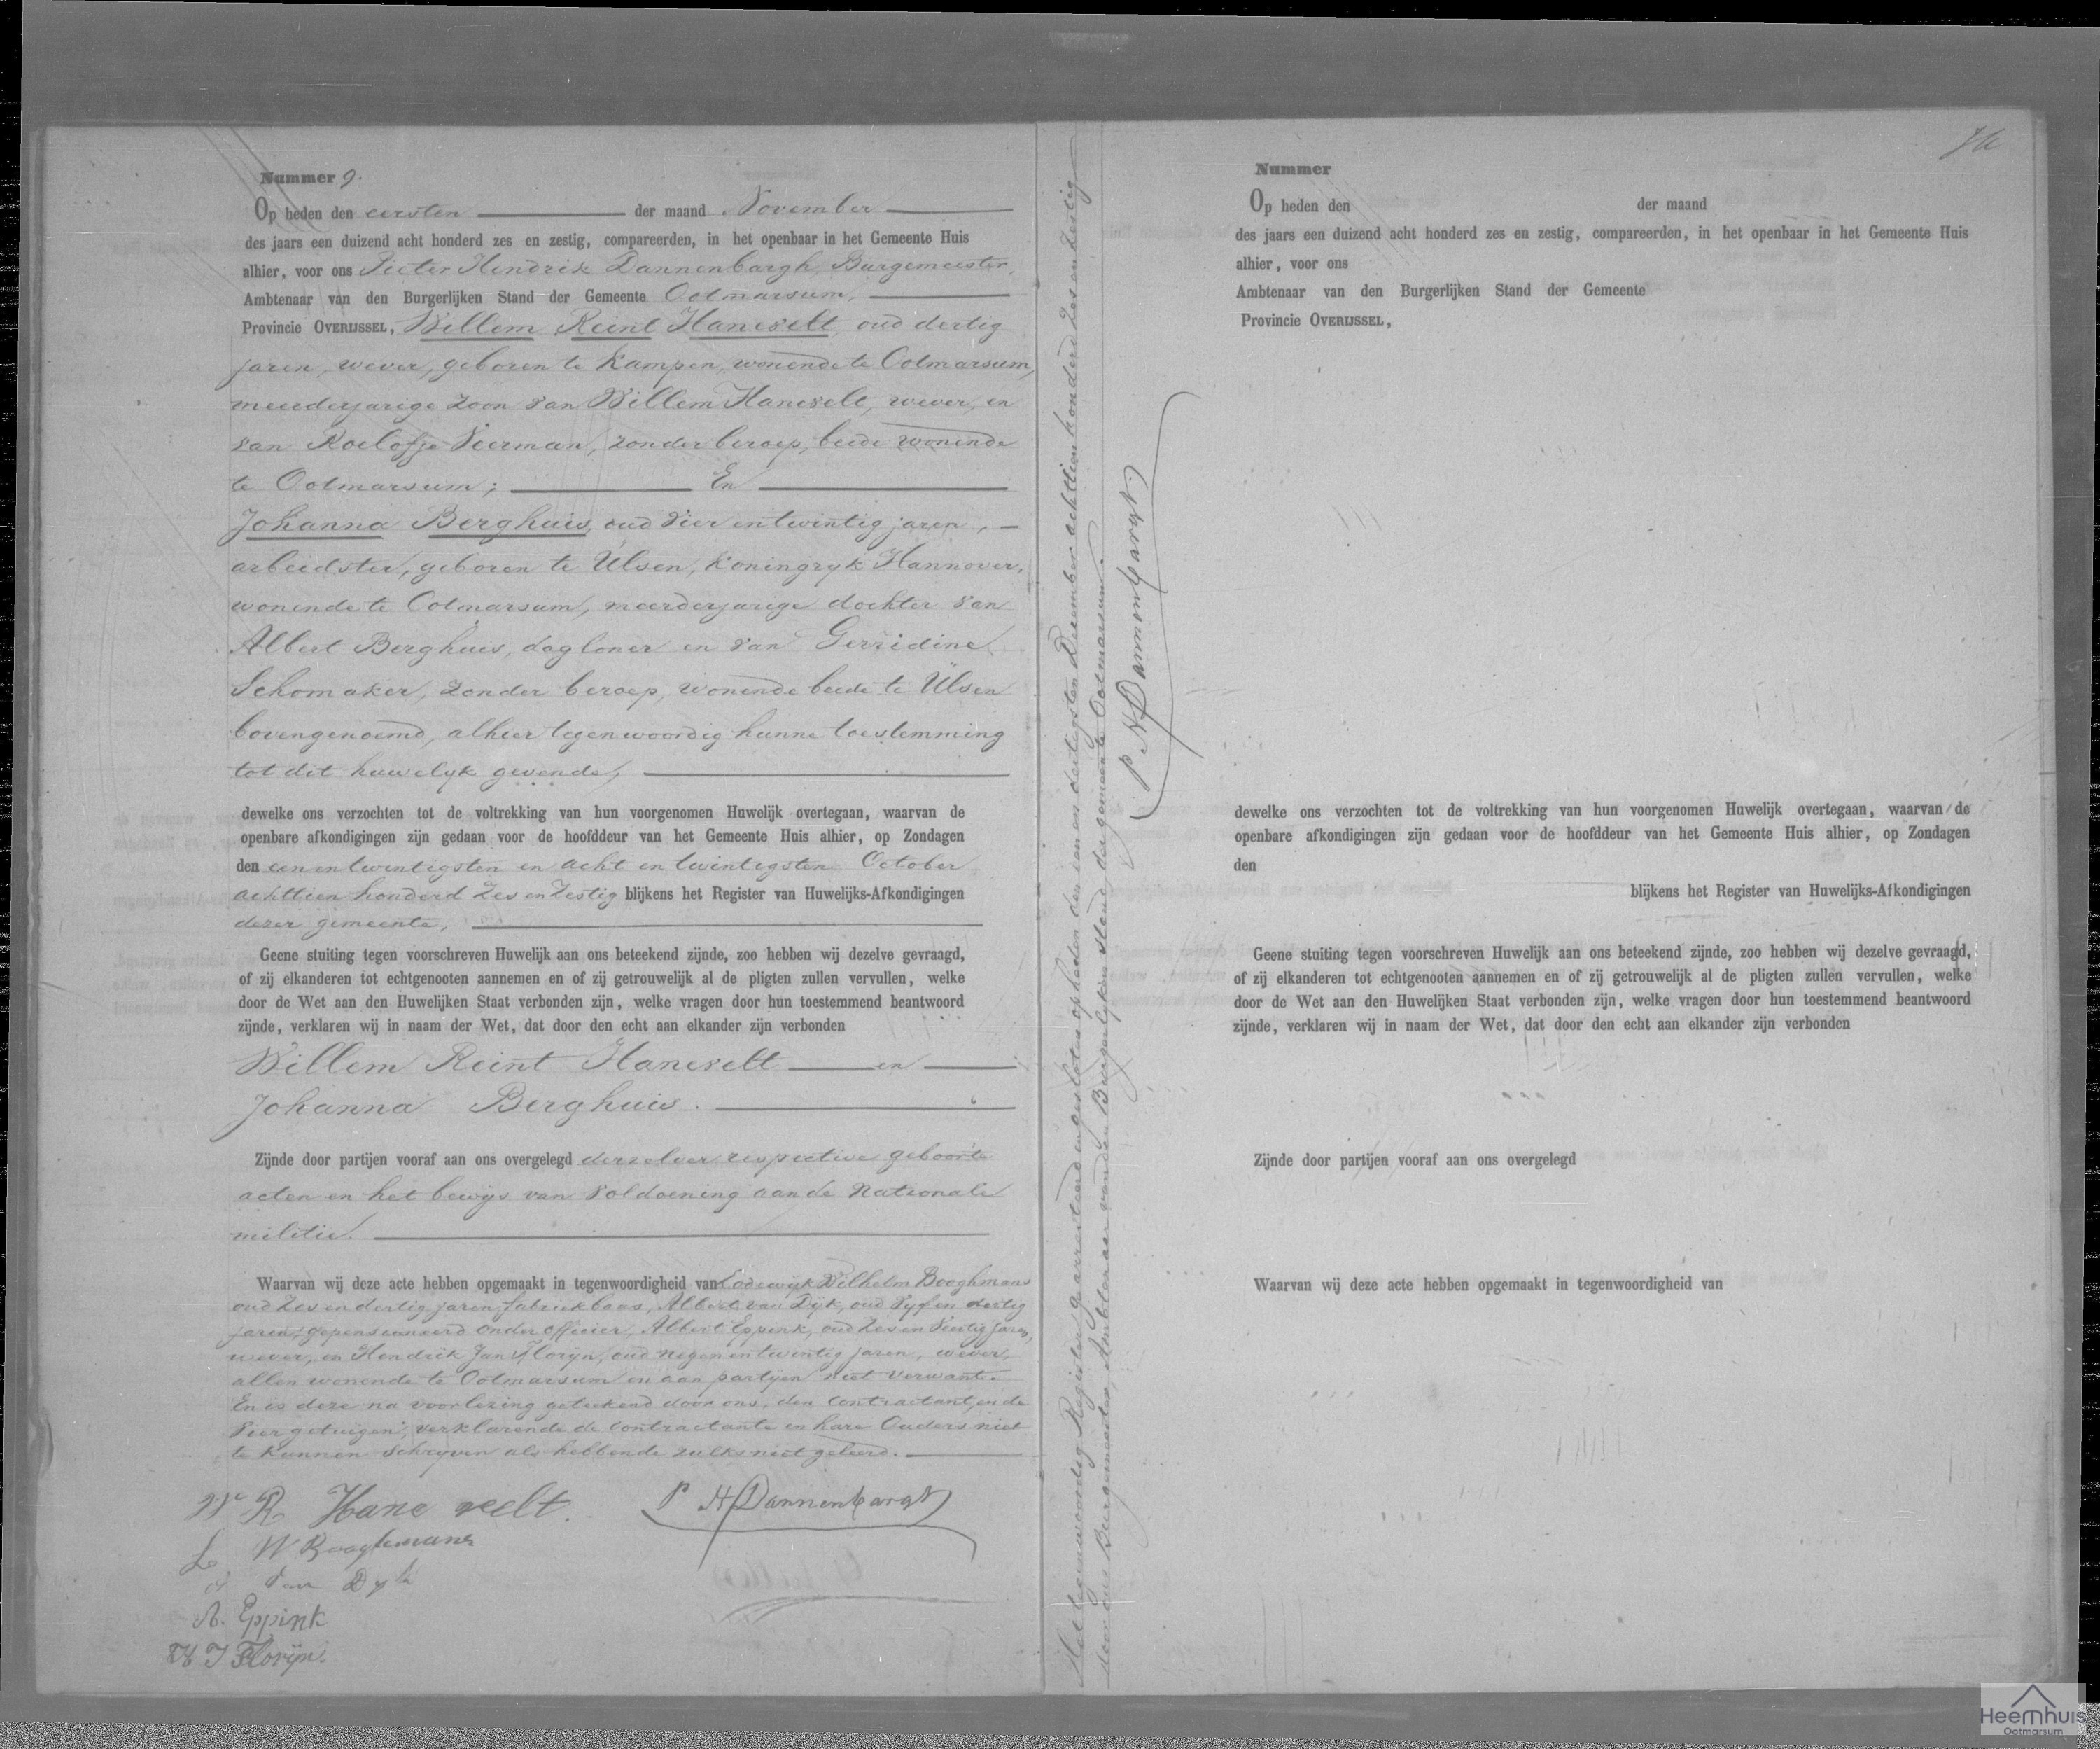 Nummer 9.
Op heden den eersten der maand November
des jaars een duizend acht honderd zes en zestig, compareerden, in het openbaar in het Gemeente Huis
alhier, voor ons Pieter Hendrik Dannenbargh, Burgemeester,
Ambtenaar van den Burgerlijken Stand der Gemeente Ootmarsum,
Provincie OVERIJSSEL, Willem Reint Hanevelt, oud dertig
jaren, wever, geboren te Kampen, wonende te Ootmarsum,
meerderjarige zoon van Willem Hanevelt, wever, en
van Roelofje Veerman, zonder beroep, beide wonende
te Ootmarsum; En
Johanna Berghuis, oud vier en twintig jaren,
arbeidster, geboren te Ulsen, Koningryk Hannover,
wonende te Ootmarsum, meerderjarige dochter van
Albert Berghuis, dagloner en van Gerridine
Schomaker, zonder beroep, wonende beide te Ulsen
bovengenoemd, alhier tegenwoordig hunne toestemming
tot dit huwelyk gevende,
dewelke ons verzochten tot de voltrekking van hun voorgenomen Huwelijk overtegaan, waarvan de
openbare afkondigingen zijn gedaan voor de hoofddeur van het Gemeente Huis alhier, op Zondagen
den een en twintigsten en acht en twintigsten October
achttien honderd zes en zestig blijkens het Register van Huwelijks-Afkondigingen
dezer gemeente,
Geene stuiting tegen voorschreven Huwelijk aan ons beteekend zijnde, zoo hebben wij dezelve gevraagd,
of zij elkanderen tot echtgenooten aannemen en of zij getrouwelijk al de pligten zullen vervullen, welke
door de Wet aan den Huwelijken Staat verbonden zijn, welke vragen door hun toestemmend beantwoord
zijnde, verklaren wij in naam der Wet, dat door den echt aan elkander zijn verbonden
Willem Reint Hanevelt en
Johanna Berghuis.
Zijnde door partijen vooraf aan ons overgelegd derzelver respective geboorte
acten en het bewijs van voldoening aan de Nationale
militie.
Waarvan wij deze acte hebben opgemaakt in tegenwoordigheid van Lodewyk Wilhelm Booghmans
oud zes en dertig jaren, fabriekbaas, Albert van Dijk, oud vyf en dertig
jaren, gepensioneerd onder officier, Albert Eppink, oud zes en veertig jaren,
wever, en Hendrik Jan Florijn, oud negen en twintig jaren, wever,
allen wonende te Ootmarsum en aan partijen niet verwant.
En is deze na voorlezing geteekend door ons, den contractant, en de
vier getuigen, verklarende de contractante en hare Ouders niet
te kunnen schryven als hebbende zulks niet geleerd.
W R Hane velt. P H Dannenbargh
L W Booghmans
A van Dyk
A. Eppink
H J Florijn.
Het tegenwoordig Register gearresteerd en gesloten op heden den een en dertigsten December achttien honderd zes en zestig
door ons Burgemeester, Ambtenaar van den Burgerlyken stand, der gemeente Ootmarsum.
P H Dannenbargh.
Nummer
Op heden den der maand
des jaars een duizend acht honderd zes en zestig, compareerden, in het openbaar in het Gemeente Huis
alhier, voor ons
Ambtenaar van den Burgerlijken Stand der Gemeente
Provincie OVERIJSSEL,
dewelke ons verzochten tot de voltrekking van hun voorgenomen Huwelijk overtegaan, waarvan de
openbare afkondigingen zijn gedaan voor de hoofddeur van het Gemeente Huis alhier, op Zondagen
den
blijkens het Register van Huwelijks-Afkondigingen
Geene stuiting tegen voorschreven Huwelijk aan ons beteekend zijnde, zoo hebben wij dezelve gevraagd,
of zij elkanderen tot echtgenooten aannemen en of zij getrouwelijk al de pligten zullen vervullen, welke
door de Wet aan den Huwelijken Staat verbonden zijn, welke vragen door hun toestemmend beantwoord
zijnde, verklaren wij in naam der Wet, dat door den echt aan elkander zijn verbonden
Zijnde door partijen vooraf aan ons overgelegd
Waarvan wij deze acte hebben opgemaakt in tegenwoordigheid van
Heemhuis
Ootmarsum